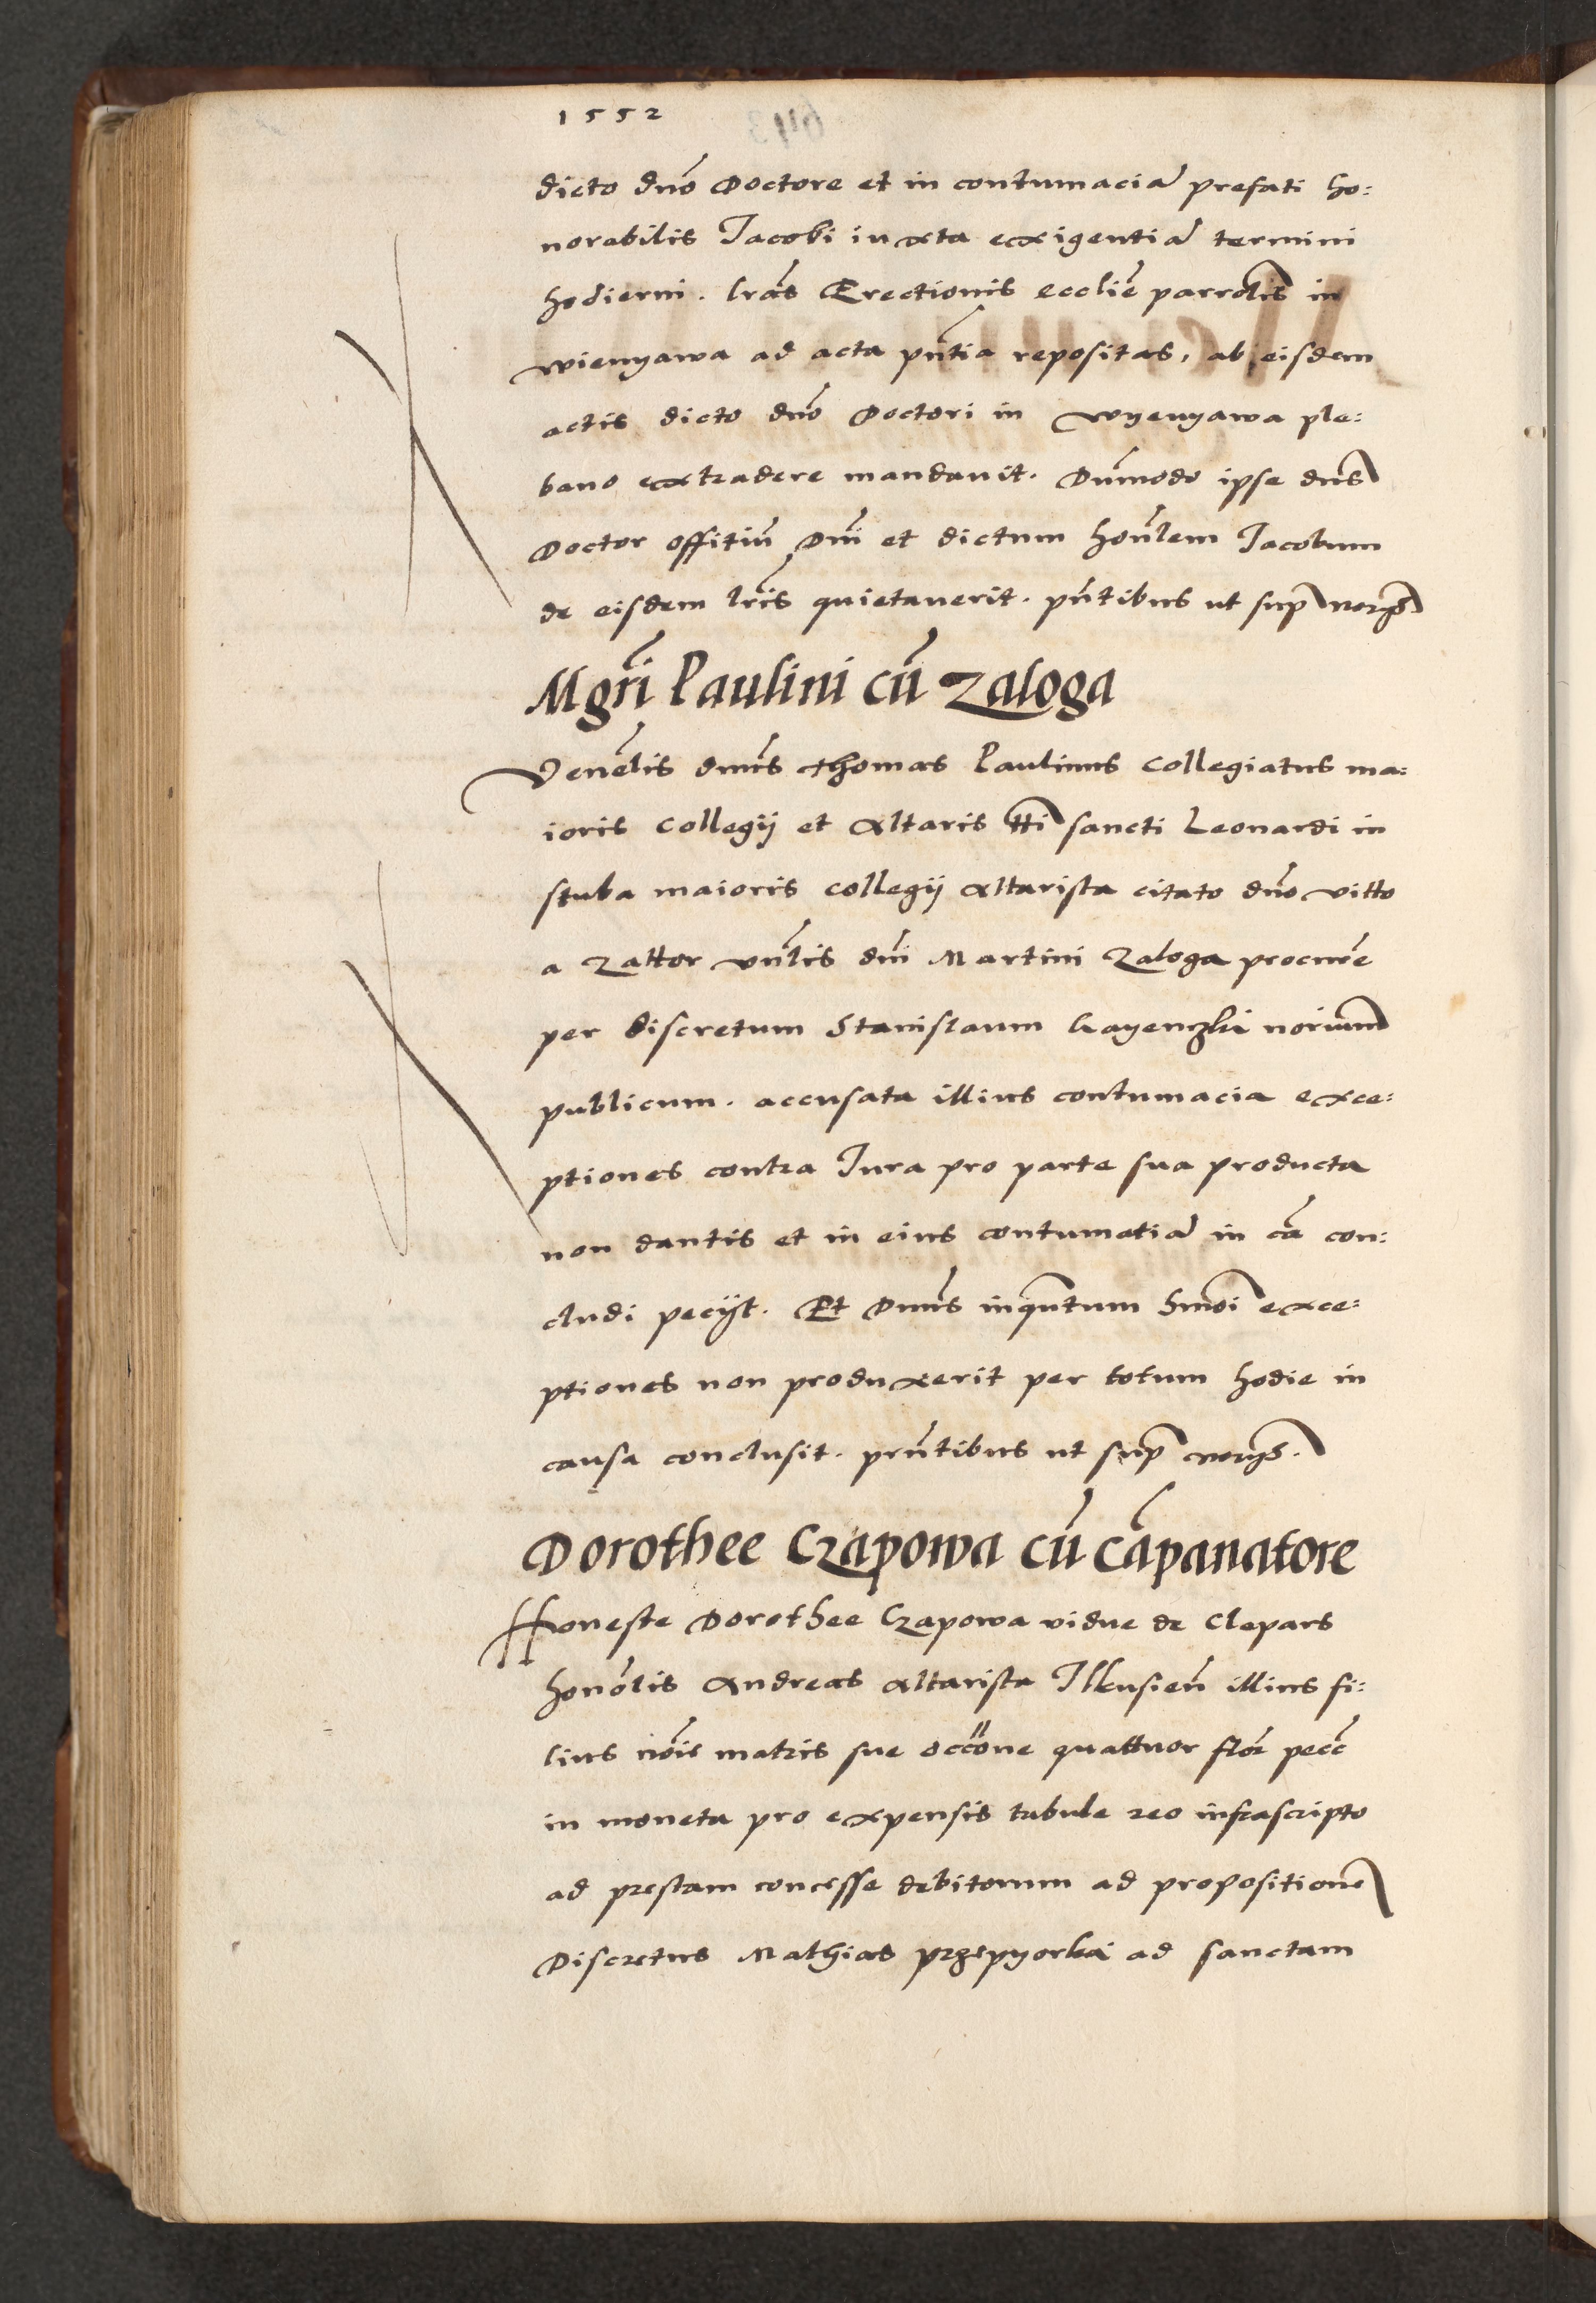 1552
dicto dnō Doctore et in contumaciā prefati ho:
norabilis Jacobi iuxta exigentiā termini
hodierni. lrās Erectionis eccliē parrolis in
wienyawa ad acta pn̄tia repositas, ab eisdem
actis dicto dnō Doctori in wyenyawa ple:
bano extradere mandauit. Dūmodo ipse dns
Doctor offitiū Dni et dictum honlem Jacobum
de eisdem lris quietauerit. pn̄tibus ut sup
Mgrī Paulini cū Zaloga
Venelis dnus Thomas Paulinus collegiatus ma:
ioris collegij et Altaris tti sancti Leonardi in
stuba maioris collegij altarista citato dnō vitto
a Zattor vnlis dni Martini Zaloga procurē
per discretum Stanislaum Gayenczki norium
publicum. accusata illius contumacia exce:
ptiones contra Jura pro parte sua producta
non dantis et in eius contumatiā in cā con:
cludi pecijt. Et Dnus inquntum hmoi exce:
ptiones non produxerit per totum hodie in
causa conclusit. prn̄tibus ut sup
Dorothee Czapowa cū cāpanatore
Honeste Dorothee Czapowa vidue de Clepars
honolis Andreas altarista Ilkusien̄ illius fi:
lius noīe matris sue occōne quattuor flor pecc
in moneta pro expensis tabule reo infrascripto
ad prestam concesse debitorum ad propositionē
Discretus Mathias przepyorka ad sanctam